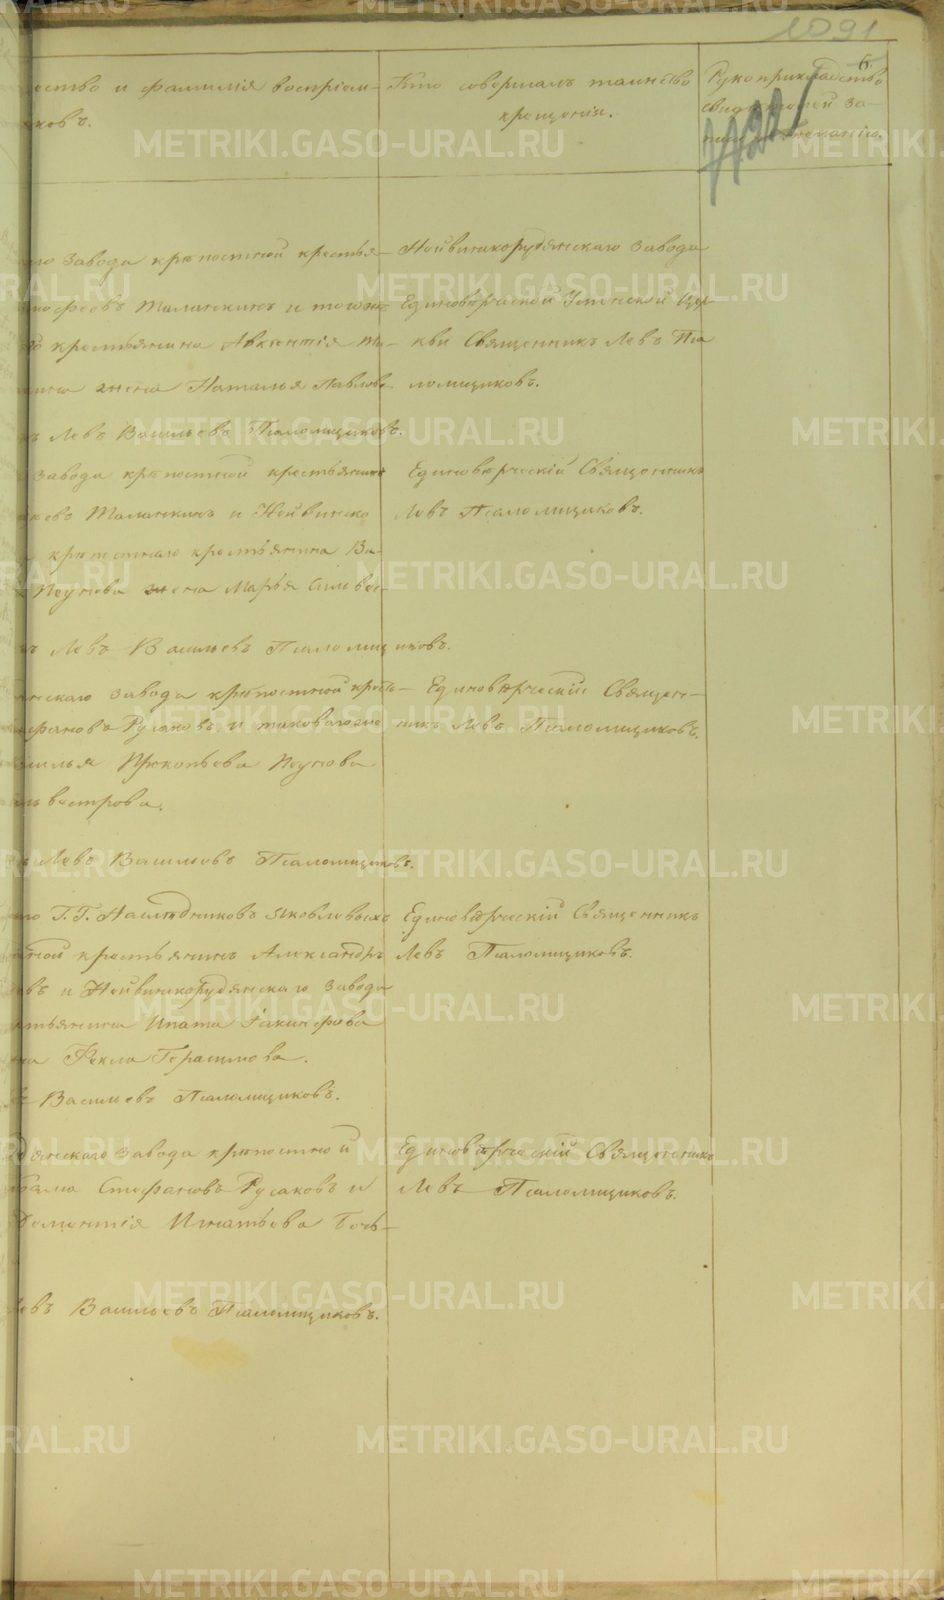 1091
6
ество и фамилія воспріем-
ковъ.
Кто совершалъ таинство
крещенія.
Рукоприкладство
свидѣтелей за-
писи по желанію.
го завода крѣпостной крестья-
Маланкинъ и того же
крестьянина Авксентія Ма-
жена Наталья Павлова
Левъ Васильевъ Псаломщиковъ.
Нейвинскорудянскаго завода
Единовѣрческой Успенской Цер
кви Священникъ Левъ Пса
ломщиковъ.
завода крѣпостной крестьянинъ
Маланкинъ и Нейвинско
крѣпостнаго крестьянина Ва-
Пеунова жена Марья Сильвес-
Левъ Васильевъ Псаломщиковъ.
Единовѣрческій Священникъ
Левъ Псаломщиковъ.
нскаго завода крѣпостной кресть-
ефановъ Русаковъ и таковаго же
Прокопьева Пеунова
вестрова.
Левъ Васильевъ Псаломщиковъ.
Единовѣрческій Священ-
никъ Левъ Псаломщиковъ.
го Г.Г. Наслѣдниковъ Яковлевыхъ
ной крестьянинъ Александръ
въ и Нейвинскорудянскаго завода
стьянина Ипата Гакинфова
на Фекла Герасимова.
Васильевъ Псаломщиковъ.
Единовѣрческій Священникъ
Левъ Псаломщиковъ.
дянскаго завода крѣпостной
Стефановъ Русаковъ и
Доментія Игнатьева Бочь-
Левъ Васильевъ Псаломщиковъ.
Единовѣрческій Священникъ
Левъ Псаломщиковъ.
METRIKI.GASO-URAL.RU